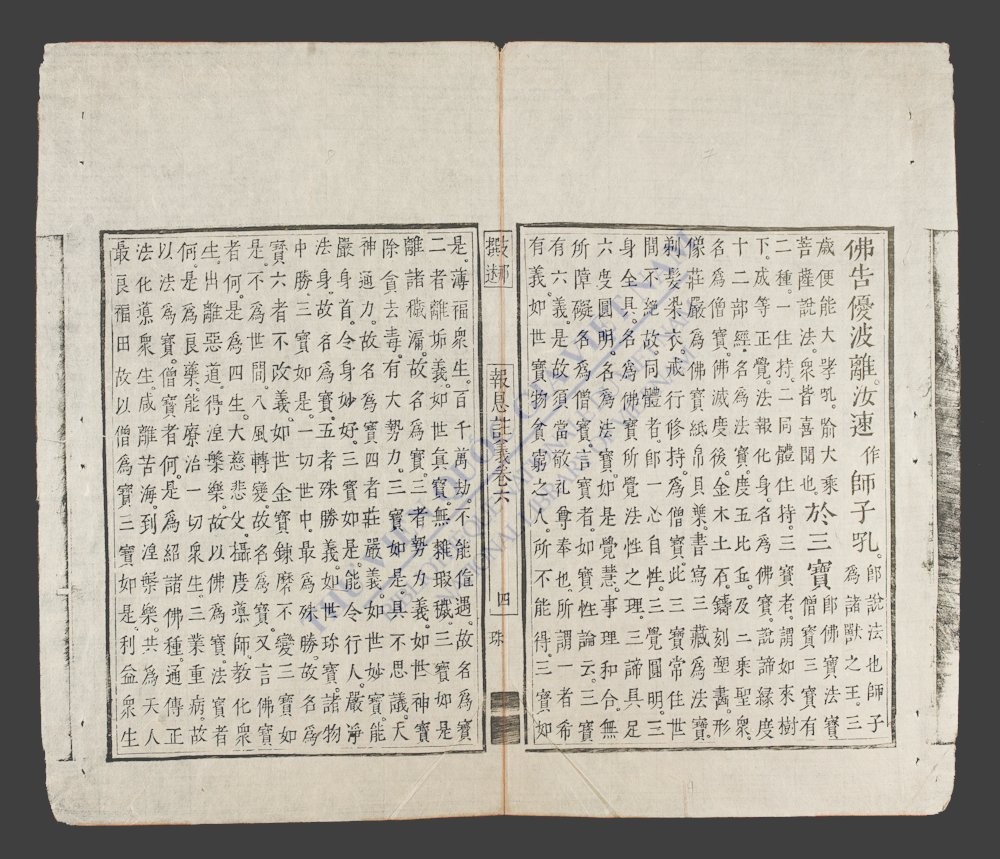 佛告優波離。汝速作師子吼。卽說法也師子
爲諸獸之王。三
歲便能大哮吼。喻大乘
菩薩說法。衆皆喜聞也。於三寶卽佛寶法寶
僧寶三寶有
二種。一住持。二同體住持。三寶者。謂如來樹
下。成等正覺。法報化身。名爲佛寶。說諦緣度
十二部經。名爲法寶。度五比丘。及二乘聖衆。
名爲僧寶。佛滅度後。金木土石。鑄刻塑畫形
像莊嚴。爲佛寶。紙帛貝葉。書寫三藏。爲法寶。
剃髮染衣。戒行修持。爲僧寶。此三寶常住世
間不絕故。同體者。卽一心自性。三覺圓明。三
身全具。名爲佛寶。所覺法性之理。三諦具足
六度圓明。名爲法寶。如是覺慧。事理和合。無
所障礙。名爲僧寶。言寶者。如寶性論云。三寶
有六義。是故須當敬禮尊奉也。所謂一者希
有義。如世寶物。貧窮之人。所不能得。三寶如
撰述
報恩註義卷六
四
珠
是。薄福衆生。百千萬劫。不能值遇。故名爲寶
二者離垢義。如世眞寶。無雜瑕穢。三寶如是
離諸穢漏。故名爲寶。三者勢力義。如世神寶
除貪去毒。有大勢力。三寶如是。具不思議。六
神通力。故名爲寶。四者莊嚴義。如世妙寶。能
嚴身首。令身妙好。三寶如是。能令行人。嚴淨
法身。故名爲寶。五者殊勝義。如世珍寶。諸物
中勝。三寶如是。一切世中。最爲殊勝。故名爲
寶六者不改義。如世金寶鍊磨不變。三寶如
是。不爲世間。八風轉變。故名爲寶。又言佛寶
者何。是爲四生。大慈悲父。攝度導師。教化衆
生。出離惡道。得涅槃樂。故以佛爲寶。法寶者
何。是爲良藥。能療治一切衆生。三業重病。故
以法爲寶。僧寶者何。是爲紹諸佛種。通傳正
法化導衆生。咸離苦海。到涅槃樂。共爲天人
最良福田。故以僧爲寶。三寶如是。利益衆生